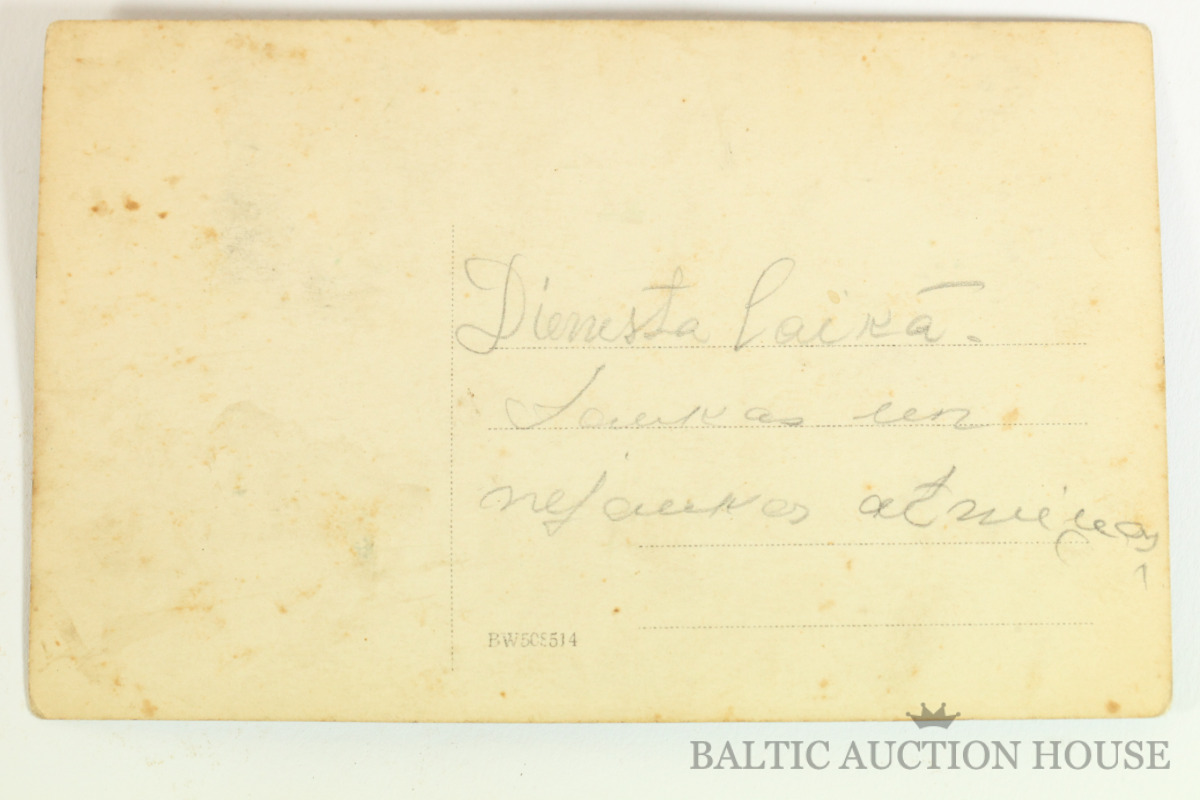 Dienesta laikā.
Jaukas un
nejaukas atmiņas
BW508514
BALTIC AUCTION HOUSE